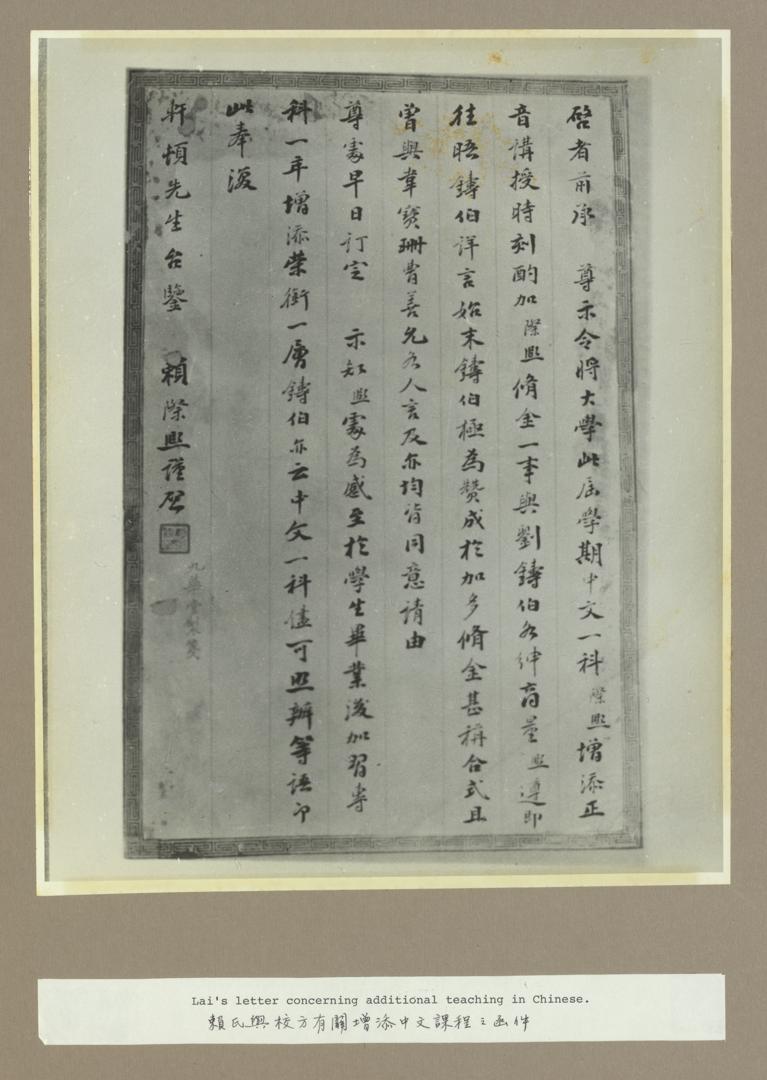 啓者前承　尊示令將大學此屆學期中文一科際熙增添正
音講授時刻酌加際熙脩金一事與劉鑄伯
商量熙遵即
往晤鑄伯詳言始末鑄伯極為贊成於加多脩金甚稱合式且
曾與韋寶珊曹善允各人言及亦均皆同意請由
尊處早日訂定　示知熙處為感至於學生畢業後加習專
科一年增添榮銜一層鑄伯亦云中文一科儘可照辦等語即
此奉復
軒頓先生台鑒　賴際熙謹啓
九華堂製箋
Lai's letter concerning additional teaching in Chinese.
賴氏與校方有關增添中文課程之函件